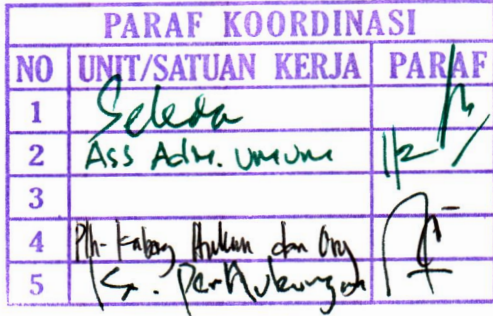 PARAF KOORDINASI
NO UNIT/SATUAN KERJA PARAF
1 Sekda
2 Ass Adm. Umum
3
4 Plh. Kabag Hukum dan Org
5 K. Perhubungan